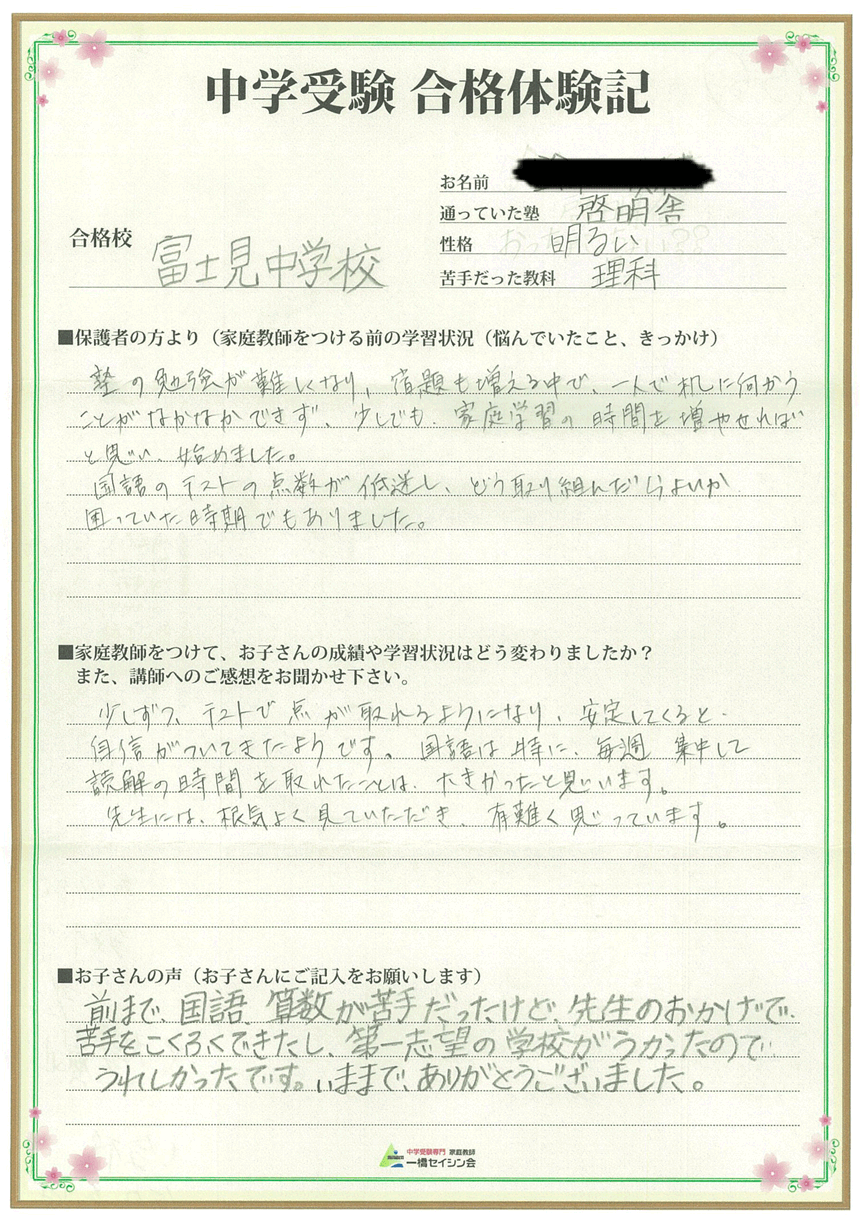 中学受験 合格体験記
お名前
通っていた塾 啓明舎
合格校 富士見中学校
性格 明るい
苦手だった教科 理科
■保護者の方より（家庭教師をつける前の学習状況（悩んでいたこと、きっかけ）
塾の勉強が難しくなり、宿題も増える中で、一人で机に向かう
ことがなかなかできず、少しでも、家庭学習の時間を増やせれば
と思い、始めました。
国語のテストの点数が低迷し、どう取り組んだらよいか
困っていた時期でもありました。
■家庭教師をつけて、お子さんの成績や学習状況はどう変わりましたか？
また、講師へのご感想をお聞かせ下さい。
少しずつ、テストで点が取れるようになり、安定してくると、
自信がついてきたようです。国語は特に、毎週 集中して
読解の時間を取れたことは、大きかったと思います。
先生には、根気よく見ていただき、有難く思っています。
■お子さんの声（お子さんにご記入をお願いします）
前まで、国語 算数が苦手だったけど、先生のおかげで、
苦手をこくふくできたし、第一志望の学校がうかったので
うれしかったです。いままで、ありがとうございました。
中学受験専門 家庭教師
一橋セイシン会